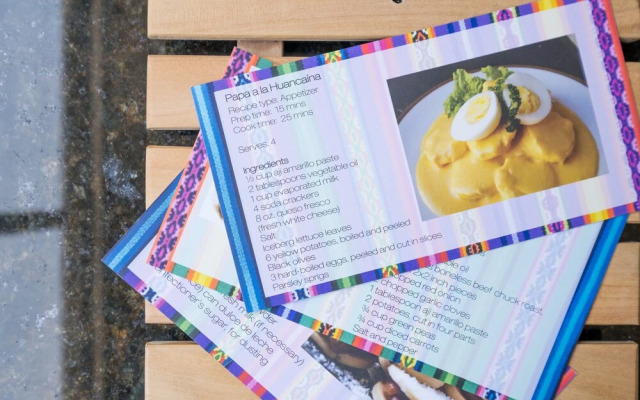 Papa a la Huancaína
Recipe type: Appetizer
Prep time: 15 mins
Cook time: 25 mins
Serves: 4
Ingredients
½ cup aji amarillo paste
2 tablespoons vegetable oil
1 cup evaporated milk
4 soda crackers
8 oz. queso fresco
(fresh white cheese)
Salt
Iceberg lettuce leaves
6 yellow potatoes, boiled and peeled
Black olives
3 hard-boiled eggs, peeled and cut in slices
Parsley sprigs
oil
boneless beef chuck roast,
2x2 inch pieces
chopped red onion
chopped garlic cloves
1 tablespoon aji amarillo paste
2 potatoes, cut in four parts
¾ cup green peas
¾ cup diced carrots
Salt and pepper
milk (if necessary)
can dulce de leche
confectioner's sugar, for dusting